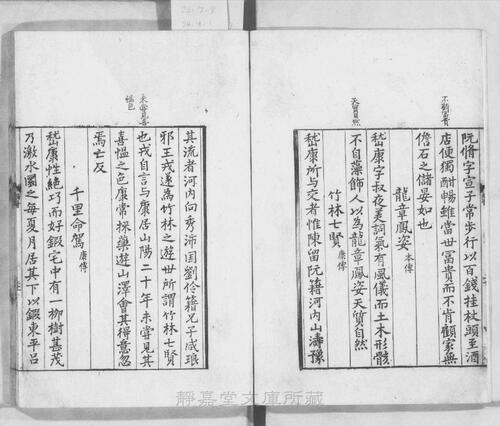 阮脩字宣子常歩行以百錢挂杖頭至酒
店便獨酣暢雖當世富貴而不肯顧家無
儋石之儲晏如也
龍章鳳姿 本傳
嵇康字叔夜美詞氣有風儀而土木形骸
不自藻飾人以為龍章鳳姿天質自然
竹林七賢 康傳
嵇康所与交者惟陳留阮籍河内山濤豫
不顧富貴
天質自然
其流者河内向秀沛国劉伶籍兄子咸琅
邪王戎遂為竹林之遊世所謂竹林七賢
也戎自言与康居山陽二十年未嘗見其
喜愠之色康常採藥遊山澤會其得意忽
焉忘反
千里命駕 康傳
嵇康性絶巧而好鍛宅中有一柳樹甚茂
乃激水圜之毎夏月居其下以鍛東平呂
未嘗見喜
愠色
静嘉堂文庫所蔵